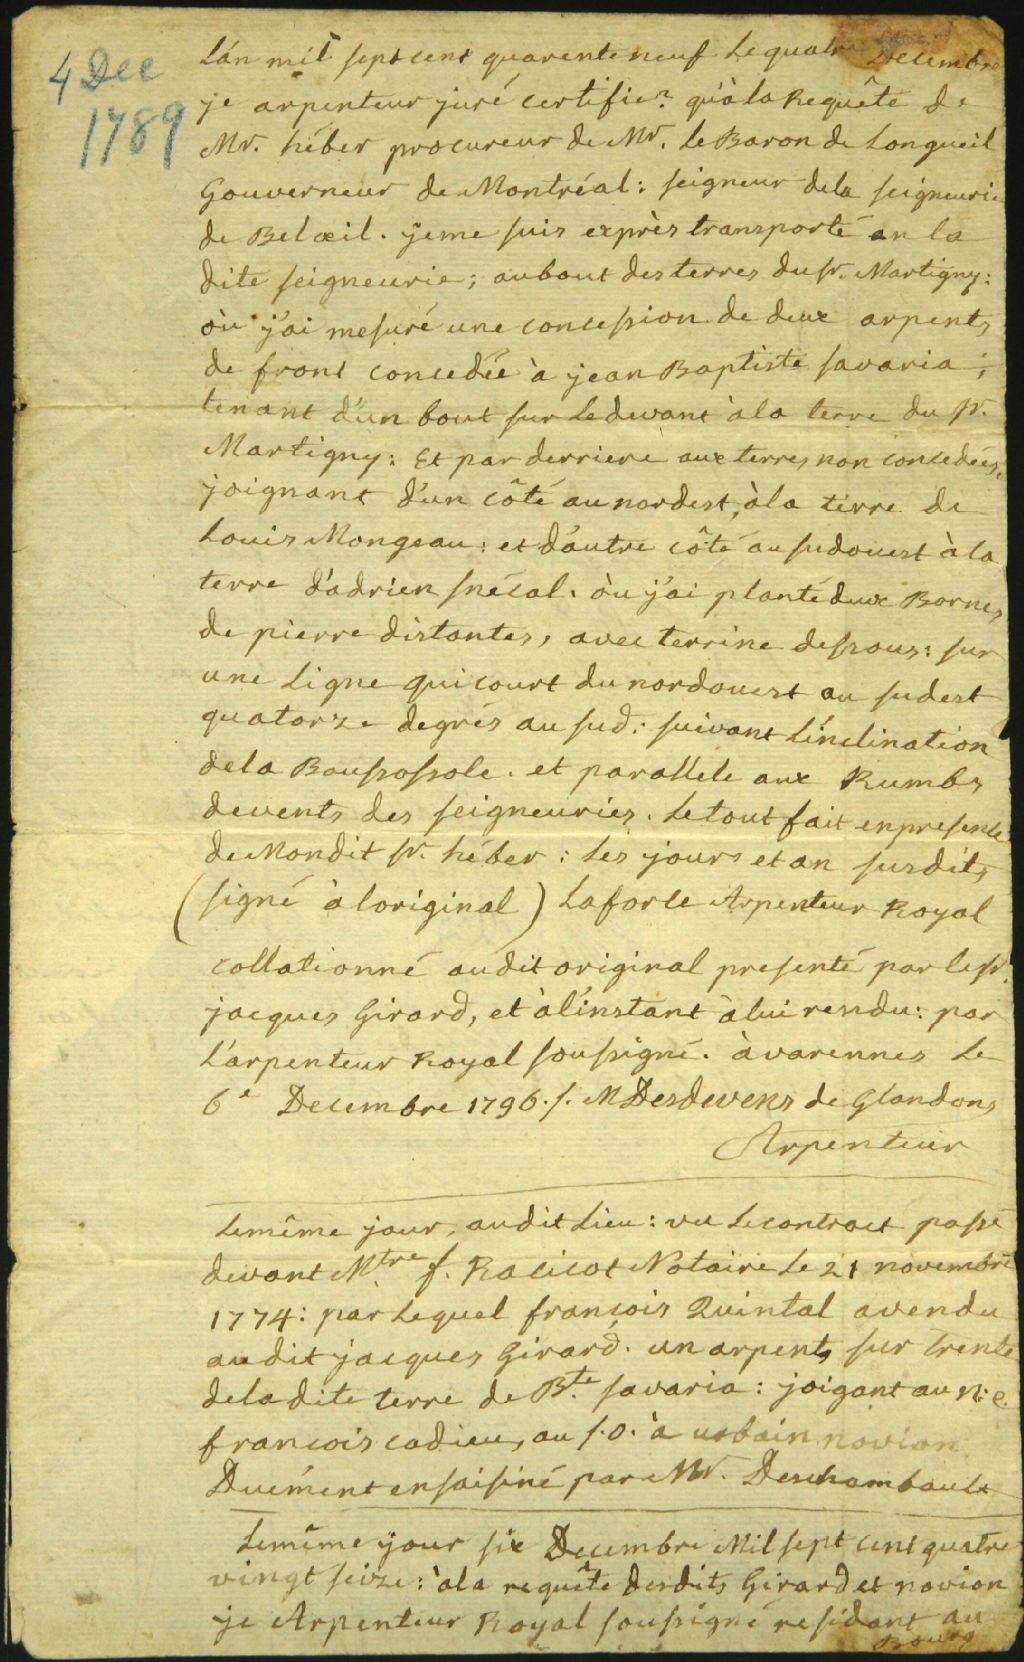 4 Dec
1789
Lán mil sept cent quarente neuf. Le quatre Decembre
je arpenteur juré certifier qu'à la Requête de
Mr. héber procureur de Mr. Le Baron de Longueil
Gouverneur de Montréal: seigneur dela seigneurie
de Belœil. jeme suis exprès transporté en la
dite seigneurie; aubout desterres dusr. Martigny:
où j'ai mesuré une concession de deux arpents
de front concedée à jean Baptiste savaria;
tenant d'un bout sur Ledevant àla terre du sr.
Martigny: Et par derriere aux terres non concedées,
joignant d'un côté aunordest, àla terre de
Louis Mongeau: et d'autre côté au sudouest à la
terre d'adrien snécal. où j'ai planté deux Bornes
de pierre distantes, avec terrine dessous: sur
une Ligne quicourt du nordouest au sudest
quatorze degrés au sud: suivant L'inclination
dela Boussossole. et parallele aux Rumbs
devents des seigneuries. Letout fait enpresence
deMondit sr. héber: Les jours et an susdits
(signé à loriginal) Laforce Arpenteur Royal
collationné audit original presenté par lesr.
jacques Girard, et àl'instant àlui rendu: par
L'arpenteur Royal soussigné. àvarennes Le
6e Decembre 1796./. M Desdevens de Glandons
Arpenteur
Lemême jour, audit Lieu: vu Lecontract passé
devant Mtre f. Racicot Notaire Le 21 novembre
1774: par Lequel françois Quintal avendu
audit jacques Girard. un arpents sur trente
deladite terre de Bte. savaria: joigant au n:e.
francois cadieu, au s.o. à urbain novion
Duëment ensaisiné par Mr. Deschambault
Lemême jour six Decembre Mil sept cent quatre
vingt seize: àla requête desdits Girard et novion
je Arpenteur Royal soussigné residant au
Bourg